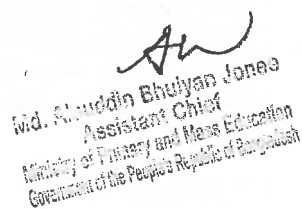 Md. Alauddin Bhuiyan Jonee
Assistant Chief
Ministry of Primary and Mass Education
Government of the People's Republic of Bangladesh